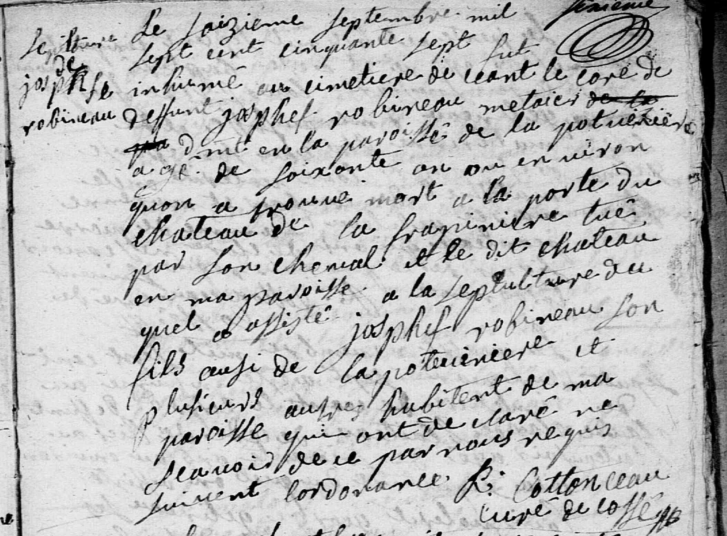 sepulture
de
josphse
robineau
Le saizieme septembre mil
sept cent cinquante sept fut
inhumé au cimetiere de ceant le core de
deffunt josphef robineau metaier de la
dmt en la paroisse de la poteviniere
agé de soixante an ou en viron
quon a trouvé mort a la porte du
chateau de la frapiniere tué
par son cheval et le dit chateau
en ma paroisse a la sepulture du
quel a assisté josphef robineau son
fils ausi de la poteviniere et
plusieurs autres habitent de ma
paroisse qui ont declaré ne
scavoir de ce par nous requis
suivent lordonance R: Cottonceau
curé de cossé